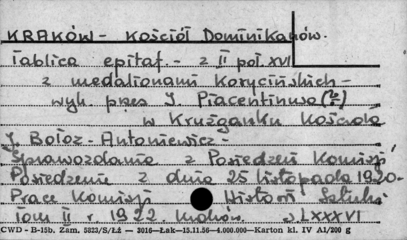 KRAKÓW - Kościół Dominikanów.
Tablica epitaf. - z II poł. XVI
z medalionami Korycińskich -
wyk. przez J. Piacentinusa (?)
w Krużganku Kościoła
J. Bołoz-Antoniewicz -
Sprawozdania z Posiedzeń Komisji
Posiedzenie z dnia 25 listopada 1920.
Prace Komisji Historii Sztuki
Tom II r. 1922. Kraków. s. LXXXVI
CWD - B-15b. Zam. 5823/S/Łż — 3016—Łak—15.11.56—4.000.000—Karton kl. IV A1/200 g